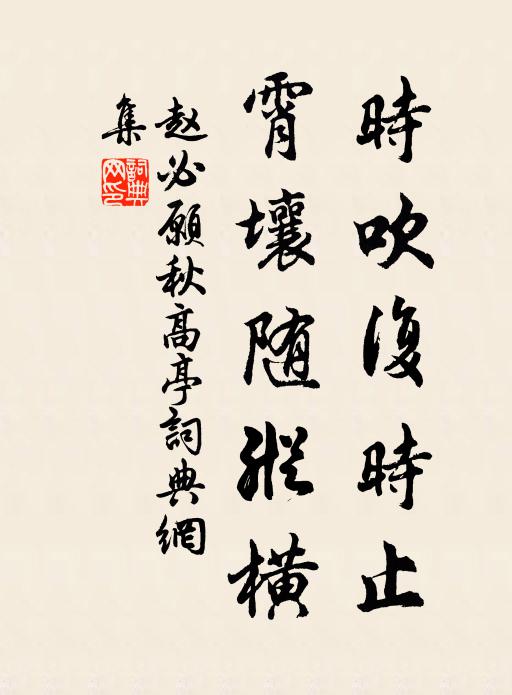 時吹復時止
霄壤随縱橫
赵必愿秋高亭詞典網
集
詞典
网印